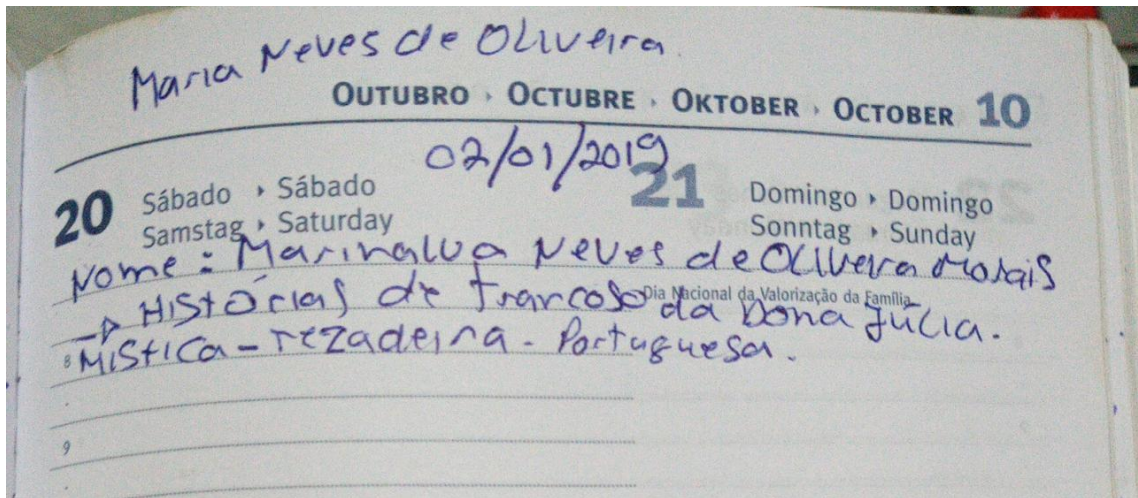 Maria Neves de Oliveira
OUTUBRO › OCTUBRE › OKTOBER › OCTOBER 10
02/01/2019
20 Sábado › Sábado
Samstag › Saturday
21 Domingo › Domingo
Sonntag › Sunday
Nome: Marinalva Neves de Oliveira Morais
Dia Nacional da Valorização da Família
→ Histórias de Trancoso da Dona Júlia.
8 Mistica - rezadeira - Portuguesa.
9